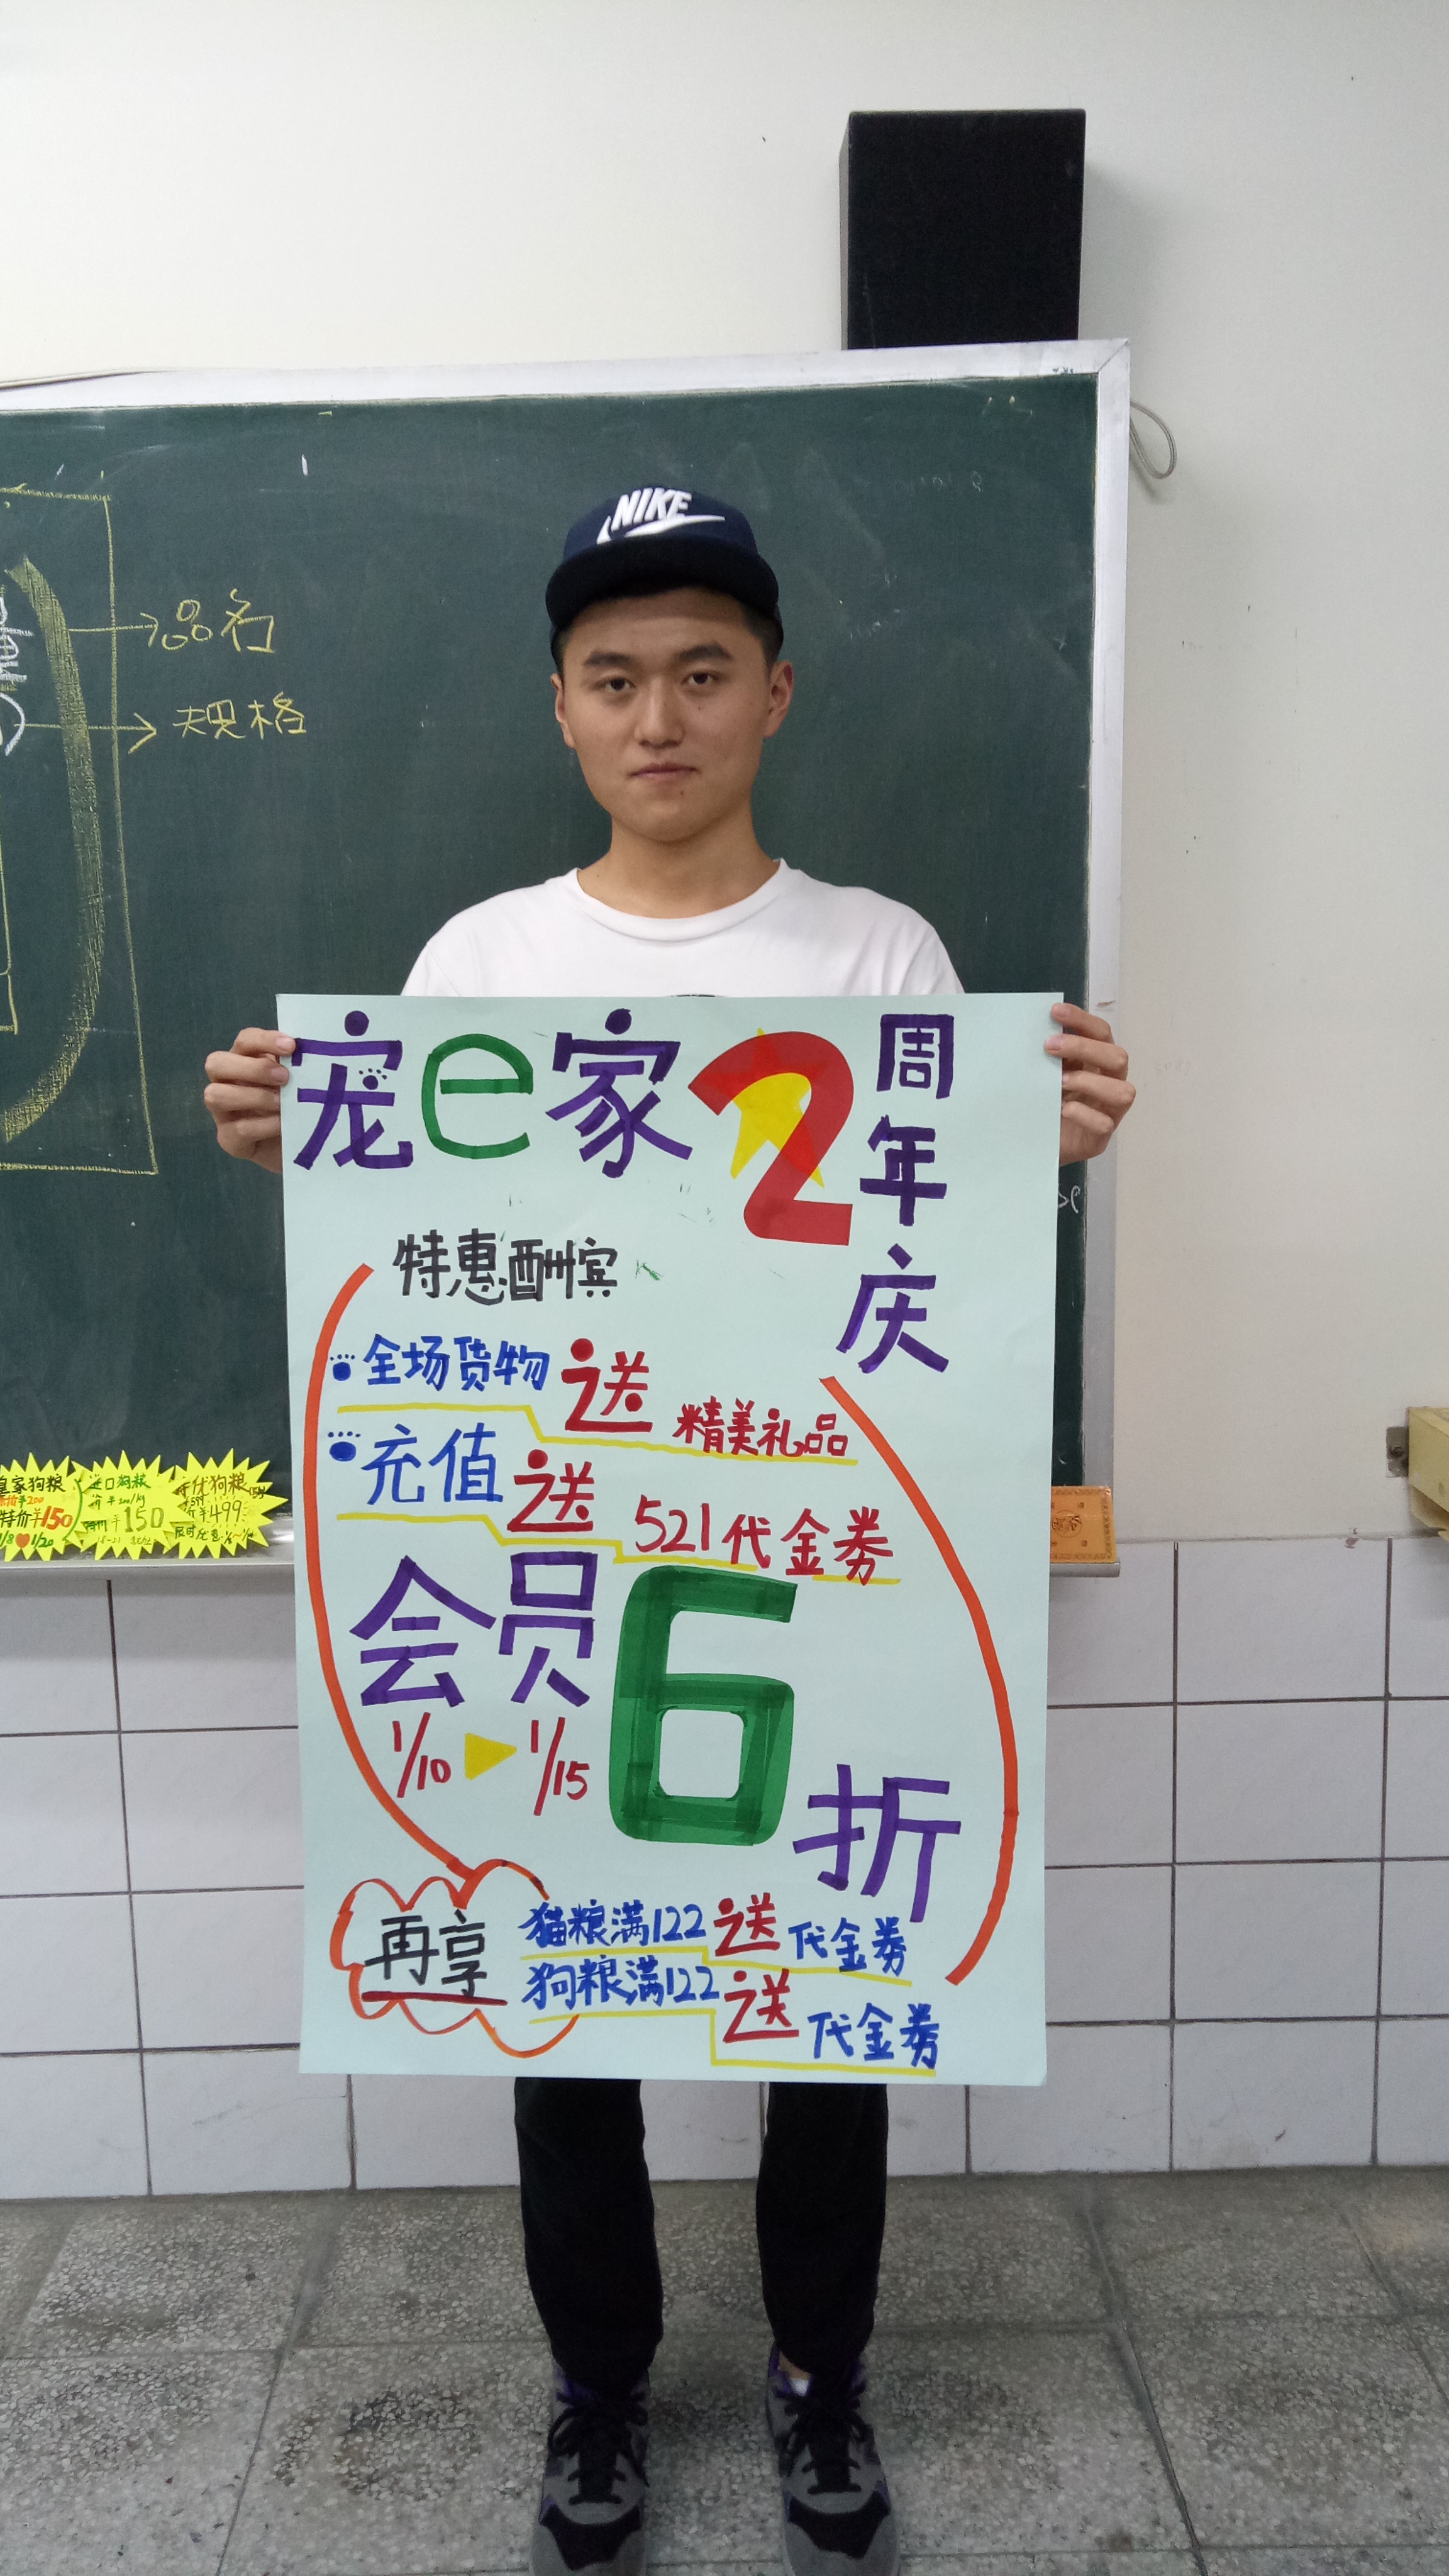 NIKE
品名
规格
宠e家2周年庆
特惠酬宾
全场货物送精美礼品
充值送521代金券
会员6折
1/10 1/15
再享
猫粮满122送代金券
狗粮满122送代金券
皇家狗粮
特价¥150
1/8 1/20
进口狗粮
¥150
狗粮
499